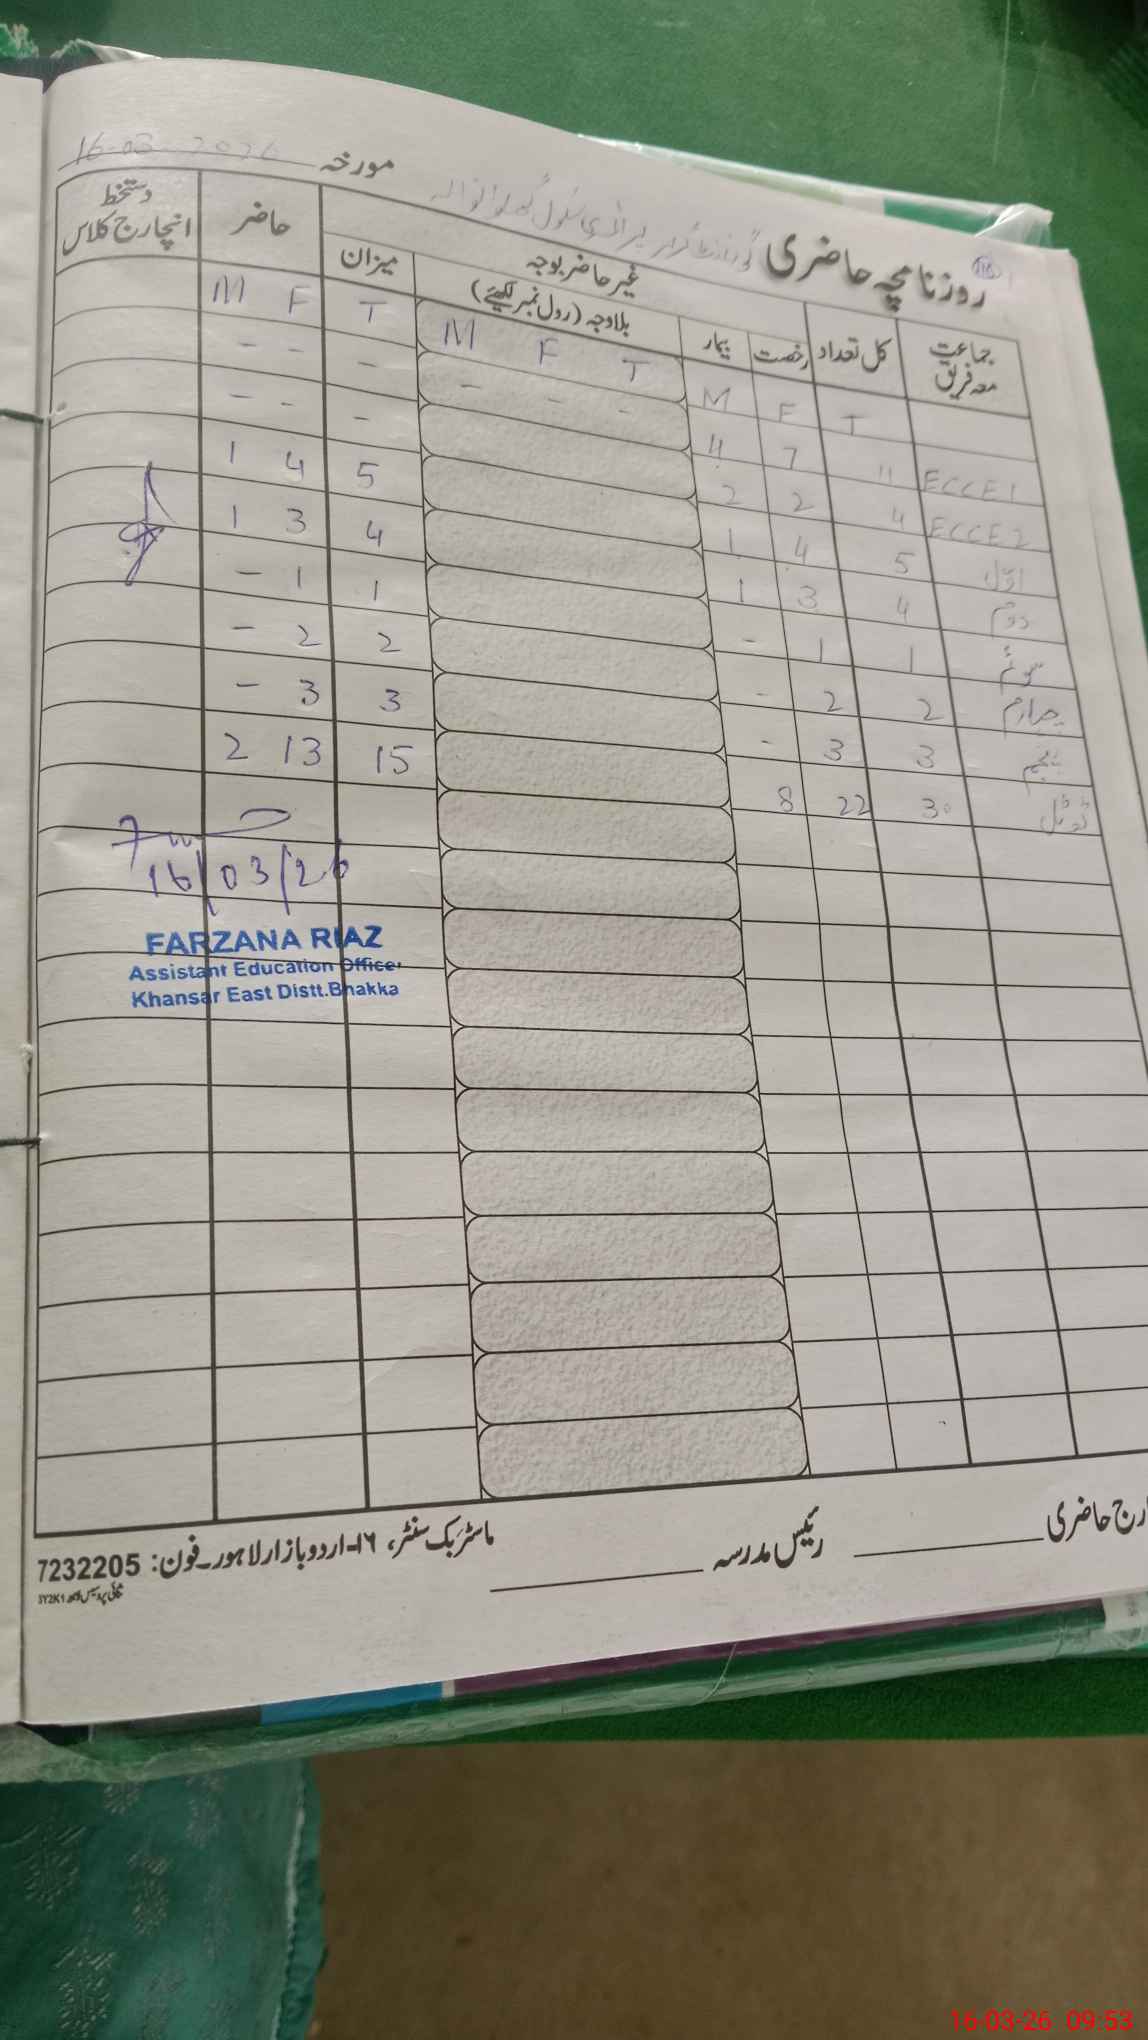 مورخہ 16-03-2026
روزنامچہ حاضری
جماعت معہ فریق | کل تعداد | رخصت | بیمار | غیر حاضر بوجہ | بلاوجہ (رول نمبر لکھیئے) | میزان | حاضر | دستخط انچارج کلاس
M F T | M F T | T | M F
ECCE 1 | 11 | 7 | 4 | - - - | - | - -
ECCE 2 | 4 | 2 | 2 | - | - -
اوّل | 5 | 4 | 1 | 5 | 4 | 1
دوئم | 4 | 3 | 1 | 4 | 3 | 1
سوئم | 1 | 1 | - | 1 | 1 | -
چہارم | 2 | 2 | - | 2 | 2 | -
پنجم | 3 | 3 | - | 3 | 3 | -
ٹوٹل | 30 | 22 | 8 | 15 | 13 | 2
16/03/26
FARZANA RIAZ
Assistant Education Officer
Khansar East Distt.Bhakka
رج حاضری
رئیس مدرسہ
ماسٹر بک سنٹر، ۱۶-اردو بازار لاہور۔ فون: 7232205
16-03-26 09:53